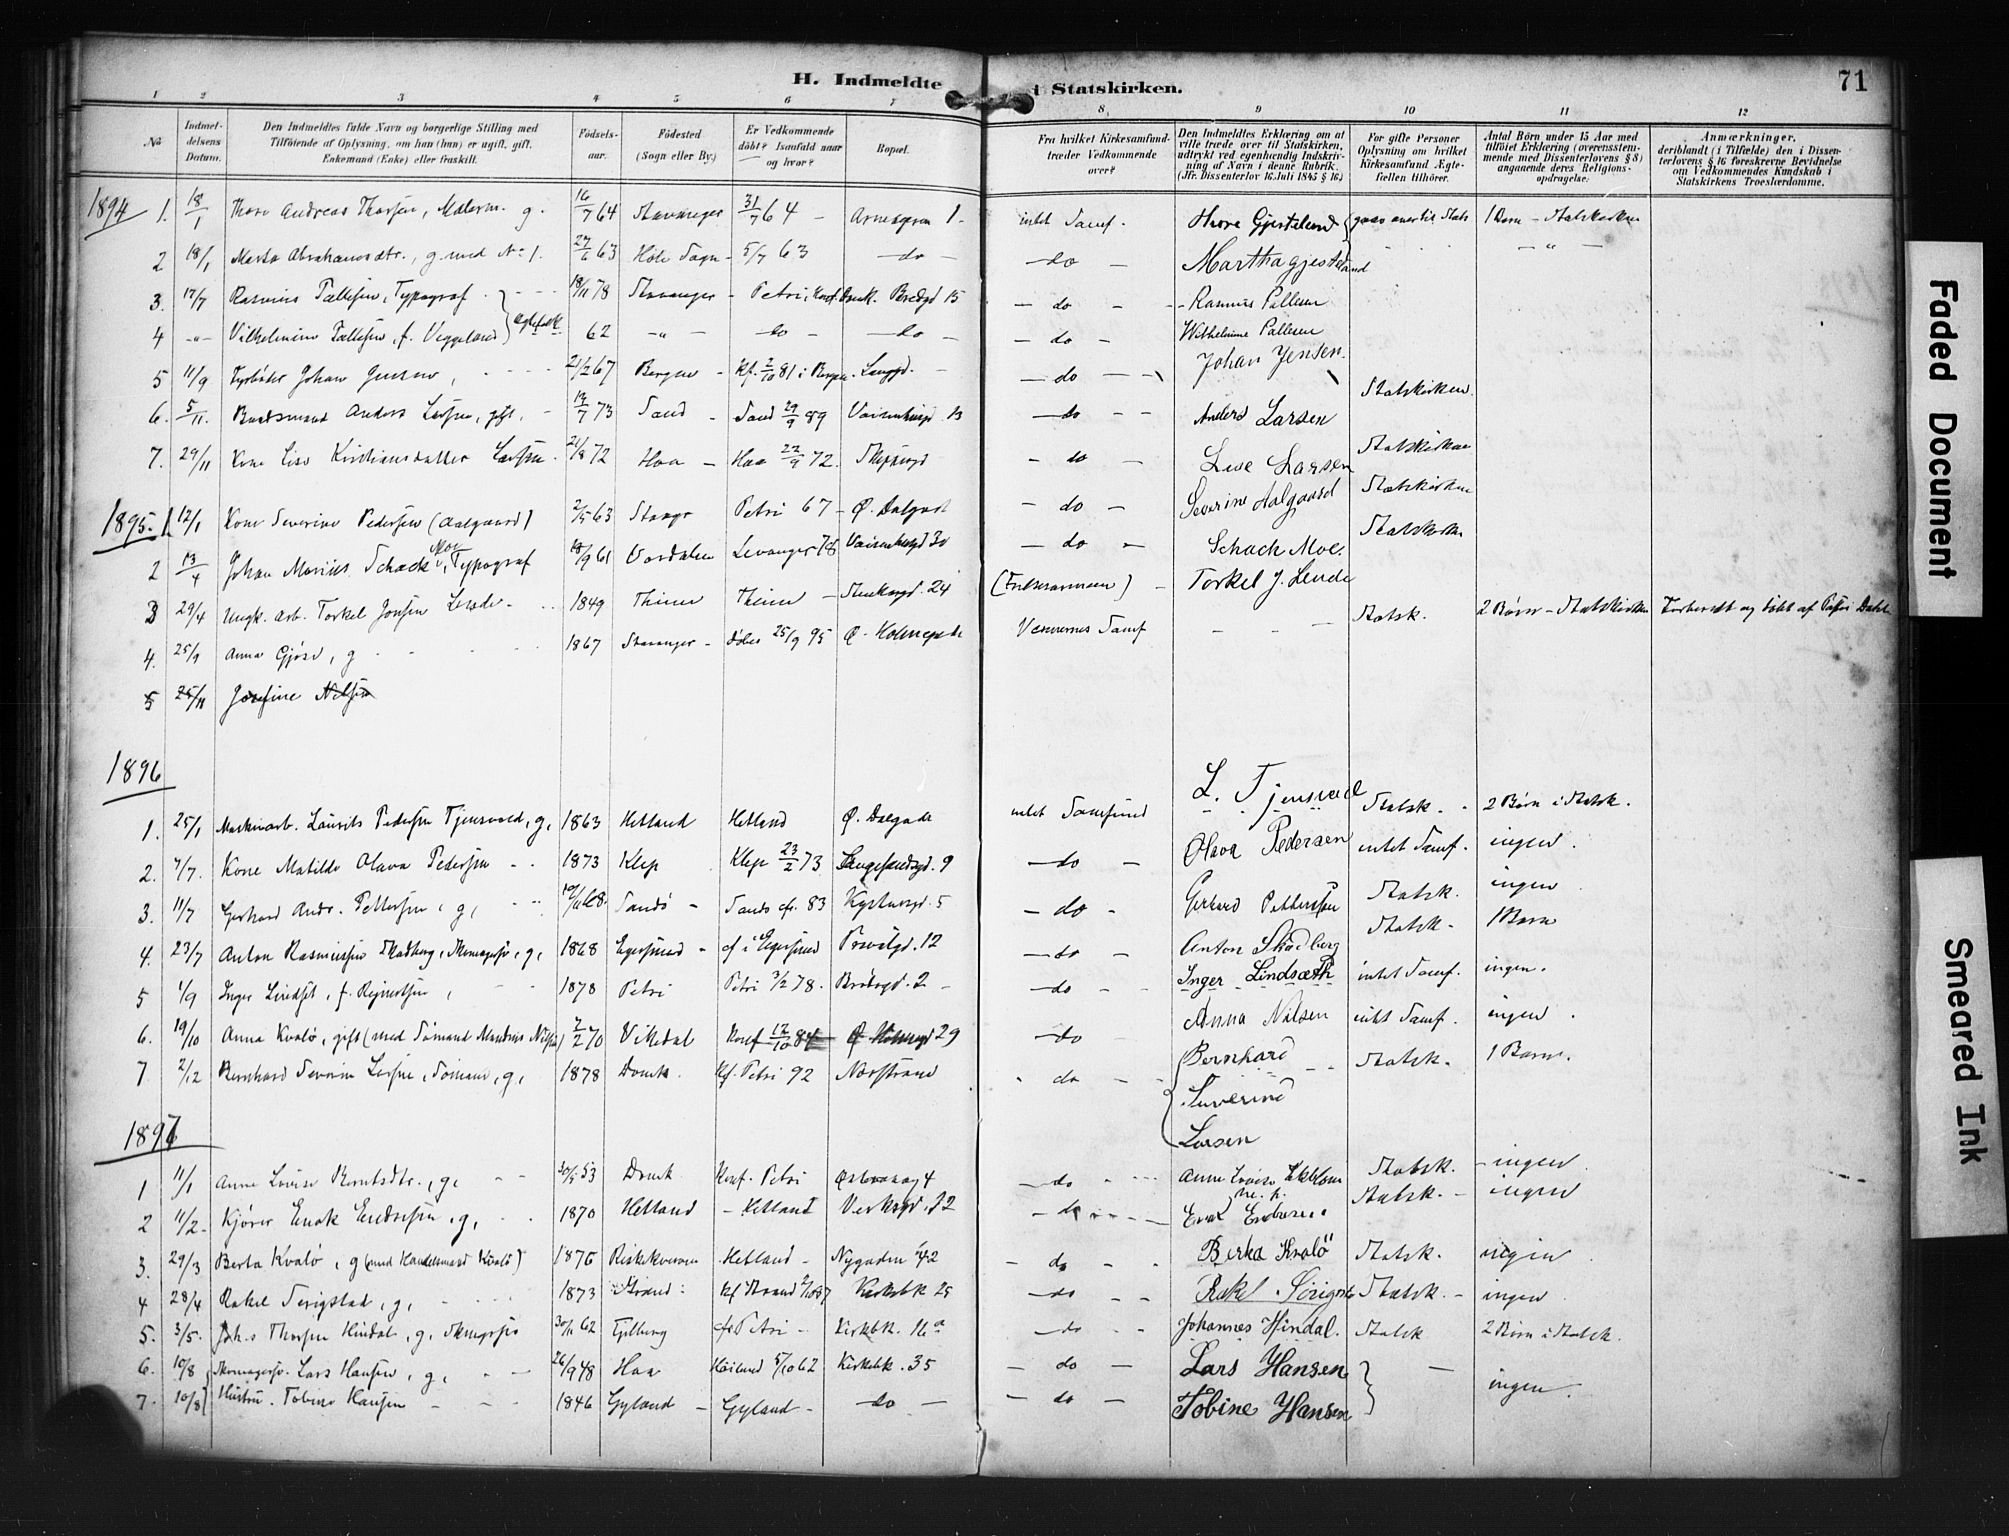 H. Indmeldte i Statskirken. 71
1 2 3 4 5 6 7 8 9 10 11 12
No
Indmeldelsens Datum.
Den Indmeldtes fulde Navn og borgerlige Stilling med Tilføiende af Oplysning, om han (hun) er ugift, gift, Enkemand (Enke) eller fraskilt.
Fødselsaar.
Fødested (Sogn eller By.)
Er Vedkommende døbt? Isaafald naar og hvor?
Bopæl.
Fra hvilket Kirkesamfund træder Vedkommende over?
Den Indmeldtes Erklæring om at ville træde over til Statskirken, udtrykt ved egenhændig Indskrivning af Navn i denne Rubrik. (Jfr. Dissenterlov 16 Juli 1845 § 16.)
For gifte Personer Oplysning om hvilket Kirkesamfund Ægtefællen tilhører.
Antal Børn under 15 Aar med tilføiet Erklæring (overensstemmende med Dissenterlovens § 8) angaaende deres Religionsopdragelse.
Anmærkninger, deriblandt (i Tilfælde) den i Dissenterlovens § 16 foreskrevne Bevidnelse om Vedkommendes Kundskab i Statskirkens Troeslærdomme.
1894 1. 18/1 Thore Andreas Thorsen, Malerm. g. 16/7 64 Stavanger 31/7 64 1 intet Samf. Thore Gjesteland 1 Barn - Statskirken
2 18/1 Marta Abrahamsdtr., g. med No 1. 27/6 63 Høle Sogn 5/7 63 do do Martha gjesteland
3. 17/7 Rasmus Pallesen, Typograf 18/11 78 Stavanger Petri, Konf. Domk. Bredgd 15 do Rasmus Pallesen
4 Vilhelmine Pallesen, f. Veggeland 62 do do do Wilhelmine Pallesen
5 11/9 Fyrbøder Johan Jensen 21/2 67 Bergen kf. 2/10 81 i Bergen Langgd. do Johan Jensen
6. 5/11. Baadsmand Anders Larsen, gift. 13/7 73 Sand Sand 29/9 89 Vaisenhusgd 13 do Anders Larsen Statskirken
7. 29/11 Kone Lise Kristiansdatter Larsen 21/8 72 Haa Haa 22/9 72. Skippergd do Lise Larsen Statskirken
1895. 1. 12/1 Kone Severine Pedersen (Aalgaard) 2/5 63 Stavgr Petri 67 Ø. Dalgade do Severine Aalgaard Statskirken
2 13/4 Johan Marius Schack Moe, Typograf 18/9 61 Værdalen Levanger 78 Vaisenhusgd 30 do Schack Moe. Statskirken
3 29/4 Ungk. arb. Torkel Jonsen Lende 1849 Thime Thime Stenkargd. 24 (Frikemanneen) Torkel J. Lende
4. 25/9 Anna Gjøse, g 1867 Stavanger døbt 25/9 95 Ø. Holmegade Vennernes Samf Statsk. 2 Børn - Statskirken Forberedt og døbt af Pastor
5 25/11 Josefine Nilsen
1896
1. 25/1 Maskinarb. Laurits Pedersen Tjensvold, g, 1863 Hetland Hetland Ø. Dalgade intet Samfund L. Tjensvold Statsk. 2 Børn i Statsk.
2. 7/7. Kone Matilde Olava Pedersen 1873 Klep Klep 23/2 73 Langesundsgd. 9 do Olava Pedersen intet Samf. ingen
3. 11/7 Gerhard Andr. Pettersen, g, 68. Sandø Sandø cf. 83 5 do Gerhard Pettersen Statsk. ingen
4. 23/7 Anton Rasmussen Skadberg, Skomagersv, g, 1868 Egersund cf i Egersund Provstgd. 12 do Anton Skadberg Statsk. 1 Barn
5 1/9 Inger Lindset, f. Rejnertsen, 1878 Petri Petri 3/2 78. Brødregd. 2 do Inger Lindsæth intet Samf. ingen.
6. 19/10 Anna Kvalø, gift (med Sømand Mandius Nilsen) 2/2 70 Vikedal Konf 12/10 84 Ø Holmegd 29 do Anna Nilsen intet Samf. ingen.
7 2/12 Bernhard Severin Larsen, Sømand, g, 1878 Domk. Kf. Petri 92 Nørstrand do Bernhard Suverind Larsen Statsk. 1 Barn.
1897
1 11/1 Anne Lovise Berntsdtr., g, 30/5 53 Domk Konf. Petri 4 do Anne Lovise m. p. Statsk. ingen
2 11/2. Kjører Enok Endresen, g, 1870 Hetland Hetland Verksgd. 12 do Enok Endresen. Statsk. ingen
3. 29/3 Berta Kvalø, g (med Handelsmand Kvalø) 1876 Riskekvernen Hetland Nygaden 42 do Berta Kvalø Statsk. ingen
4 28/4 Rakel Serigstad, g, 1873 Strand kf Strand 87 Kirkebk 25 do Rakel Sørigsta Statsk. ingen
5. 3/5. Johs Thorsen Hindal, g, Skomgersv 30/11 62 cf Petri Kirkbk. 16a do Johannes Hindal. Statsk 2 Børn i Statsk.
6. 10/8 Skomagersv. Lars Hansen, g, 26/9 48 Haa Høiland 5/10 62 Kirkebk. 35 do Lars Hansen
7. 10/8 Hustru. Tobine Hansen 1846 Gyland Gyland do do Tobine Hansen ingen.
Faded Document
Smeared Ink